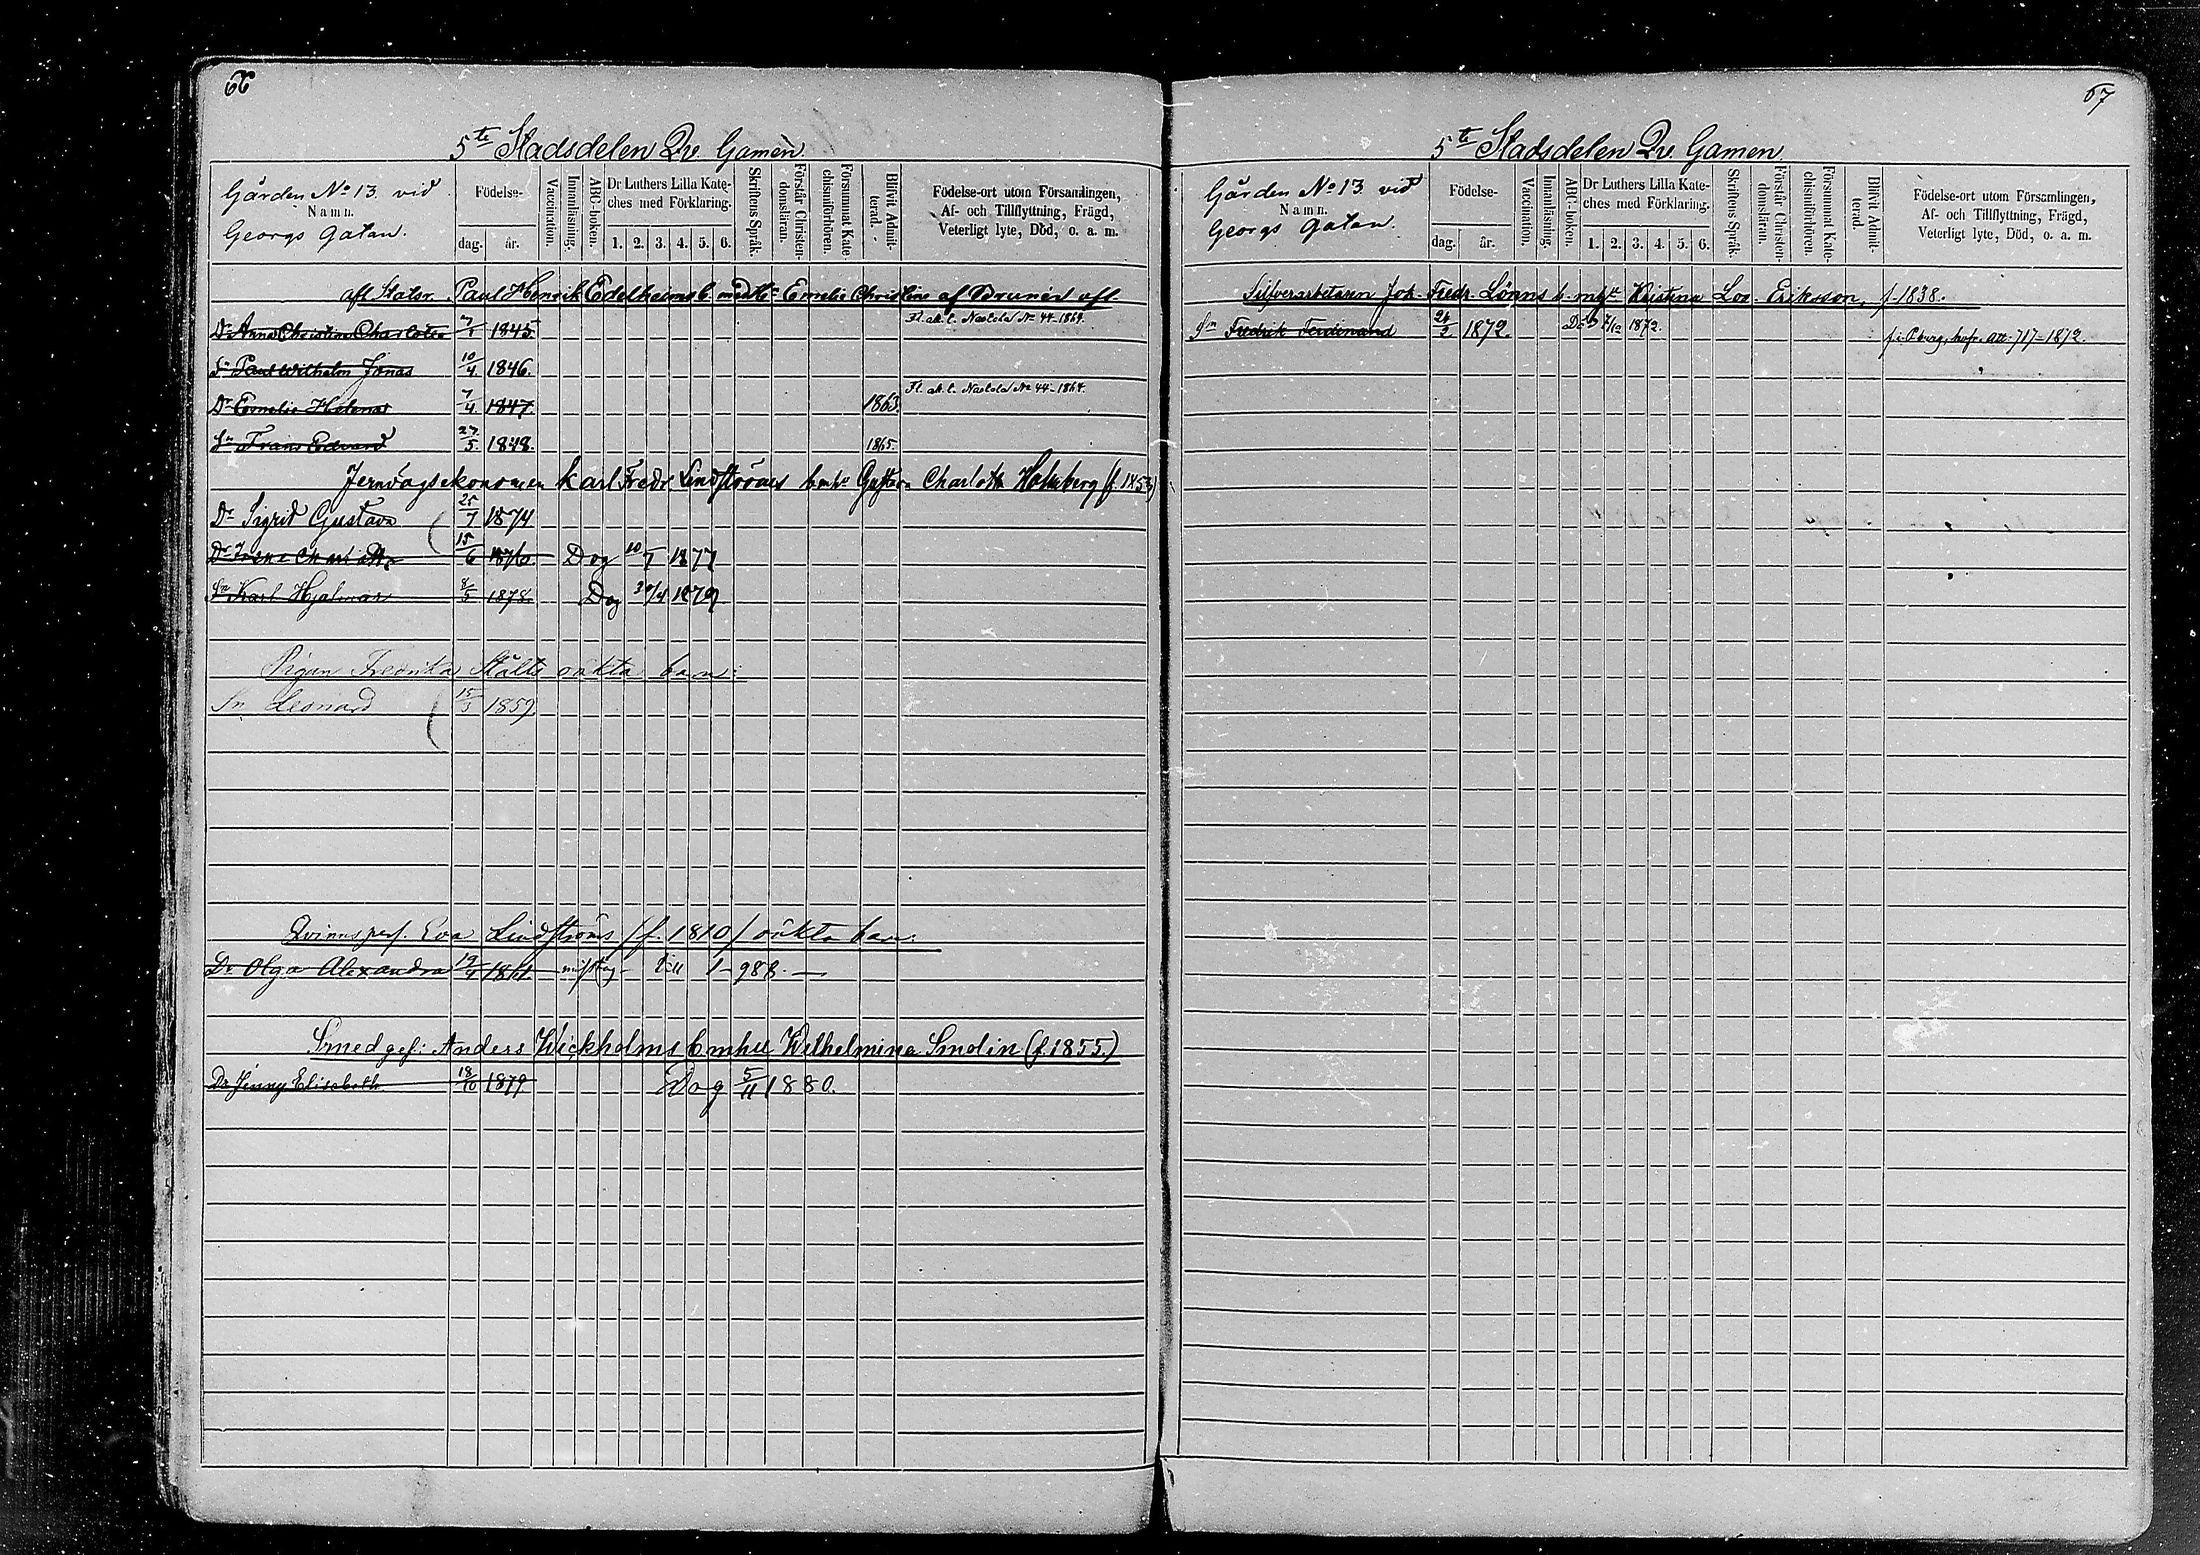 66
5te Stadsdelen Qv. Gamen
Gården No 13 vid
Namn.
Georgs gatan.
Födelse-
dag. år.
Vaccination.
Innanläsning.
ABC-boken.
Dr Luthers Lilla Kate-
ches med Förklaring.
1. 2. 3. 4. 5. 6.
Skriftens Språk.
Förstår Christen-
domsläran.
Försummat Kate-
chismiförhören.
Blifvit Admit-
terad.
Födelse-ort utom Församlingen,
Af- och Tillflyttning, Frägd,
Veterligt lyte, Död, o. a. m.
afl. Statsr. Paul Henrik Edelheims b. med Emelie Christine af Brunér afl.
Dr Anna Christina Charlotta 7/1 1845. Fl. att. t. Nastola No 44-1864.
Sn Paul Wilhelm Jonas 10/4 1846.
Dr Emelie Helena 7/4 1847. 1863. Fl. att. t. Nastola No 44-1864.
Sn Frans Edvard 27/5 1848. 1865.
Jernvägsekonomen Karl Fredr. Lindströms b. mhu Gustava Charlotta Holmberg (f. 1853)
Dr Sigrid Gustava 25/7 1874
Dr Charlotta 15/6 1876. Dog 10/7 1877
Sn Karl Hjalmar 8/5 1878. Dog 30/4 1879
Pigan Fredrika Ståls oäkta barn:
Sn Leonard 15/3 1859
Qvinnspers. Eva Lindströms /f. 1810/ oäkta barn.
Dr Olga Alexandra 19/4 1861 till 1-988.
Smedges: Anders Wickholms b mhu Wilhelmina Smolin (f. 1855.)
Dr Jenny Elisabeth 18/10 1879 Dog 5/11 1880.
67
5te Stadsdelen Qv. Gamen
Gården No 13 vid
Namn.
Georgs Gatan.
Födelse-
dag. år.
Vaccination.
Innanläsning.
ABC-boken.
Dr Luthers Lilla Kate-
ches med Förklaring.
1. 2. 3. 4. 5. 6.
Skriftens Språk.
Förstår Christen-
domsläran.
Försummat Kate-
chismiförhören.
Blifvit Admit-
terad.
Födelse-ort utom Församlingen,
Af- och Tillflyttning, Frägd,
Veterligt lyte, Död, o. a. m.
Silfverarbetaren Joh. Fredr. Lönns b. mhu Kristina Lov. Eriksson, f. 1838.
Sn Fredrik Ferdinand 24/2 1872. Död 7/12 1872. f. i P.burg, att. 717-1872.